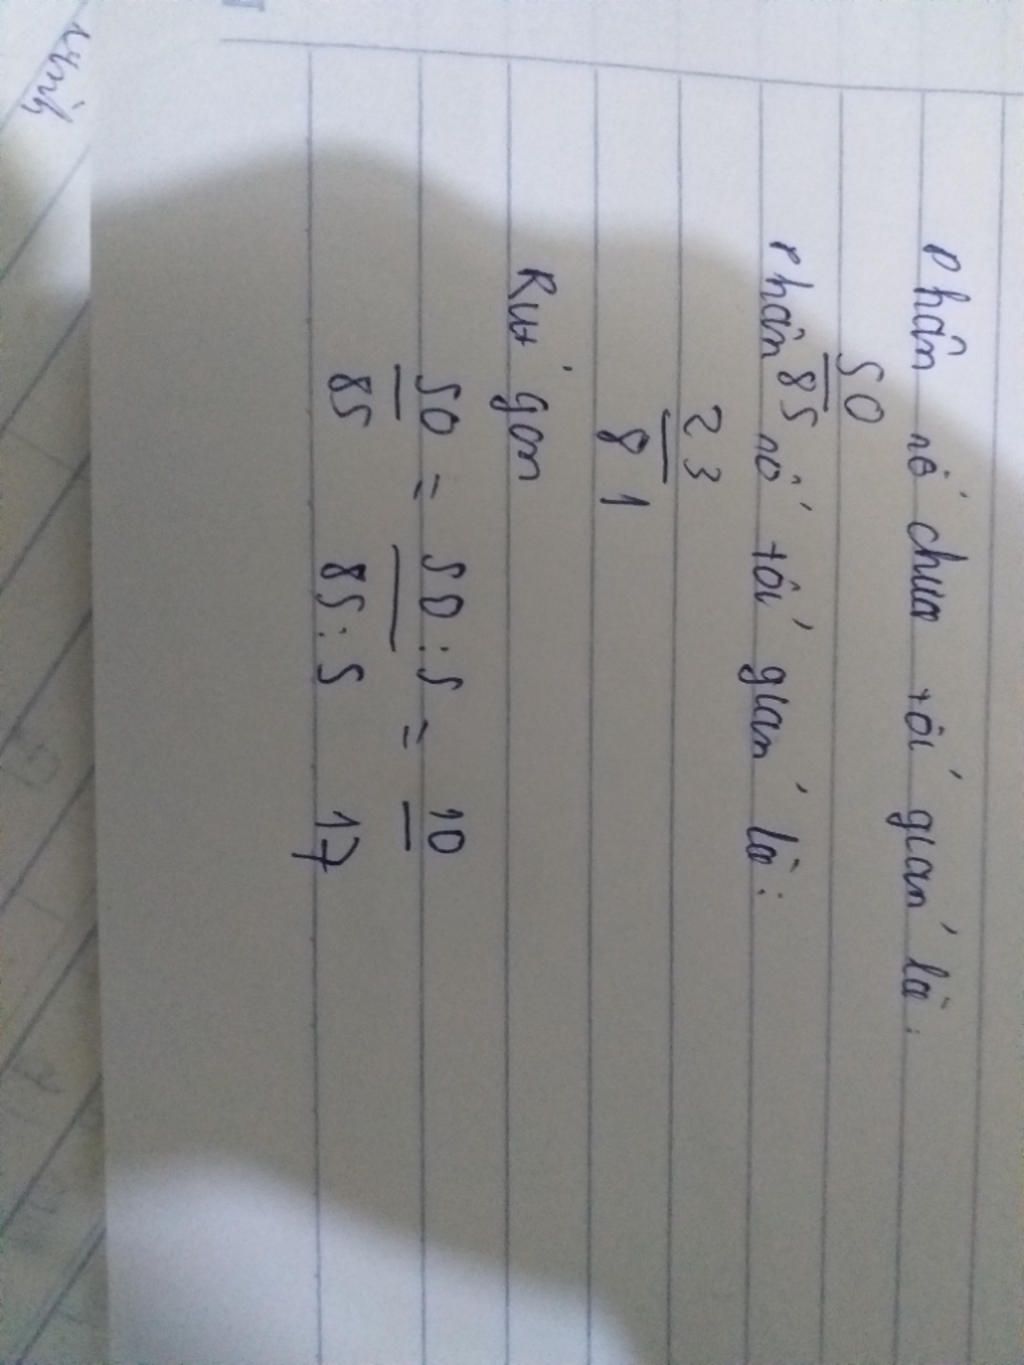 Phân số chưa tối giản là:
50
85
Phân số tối giản là:
23
81
Rut' gọn
50 = 50:5 = 10
85 85:5 17